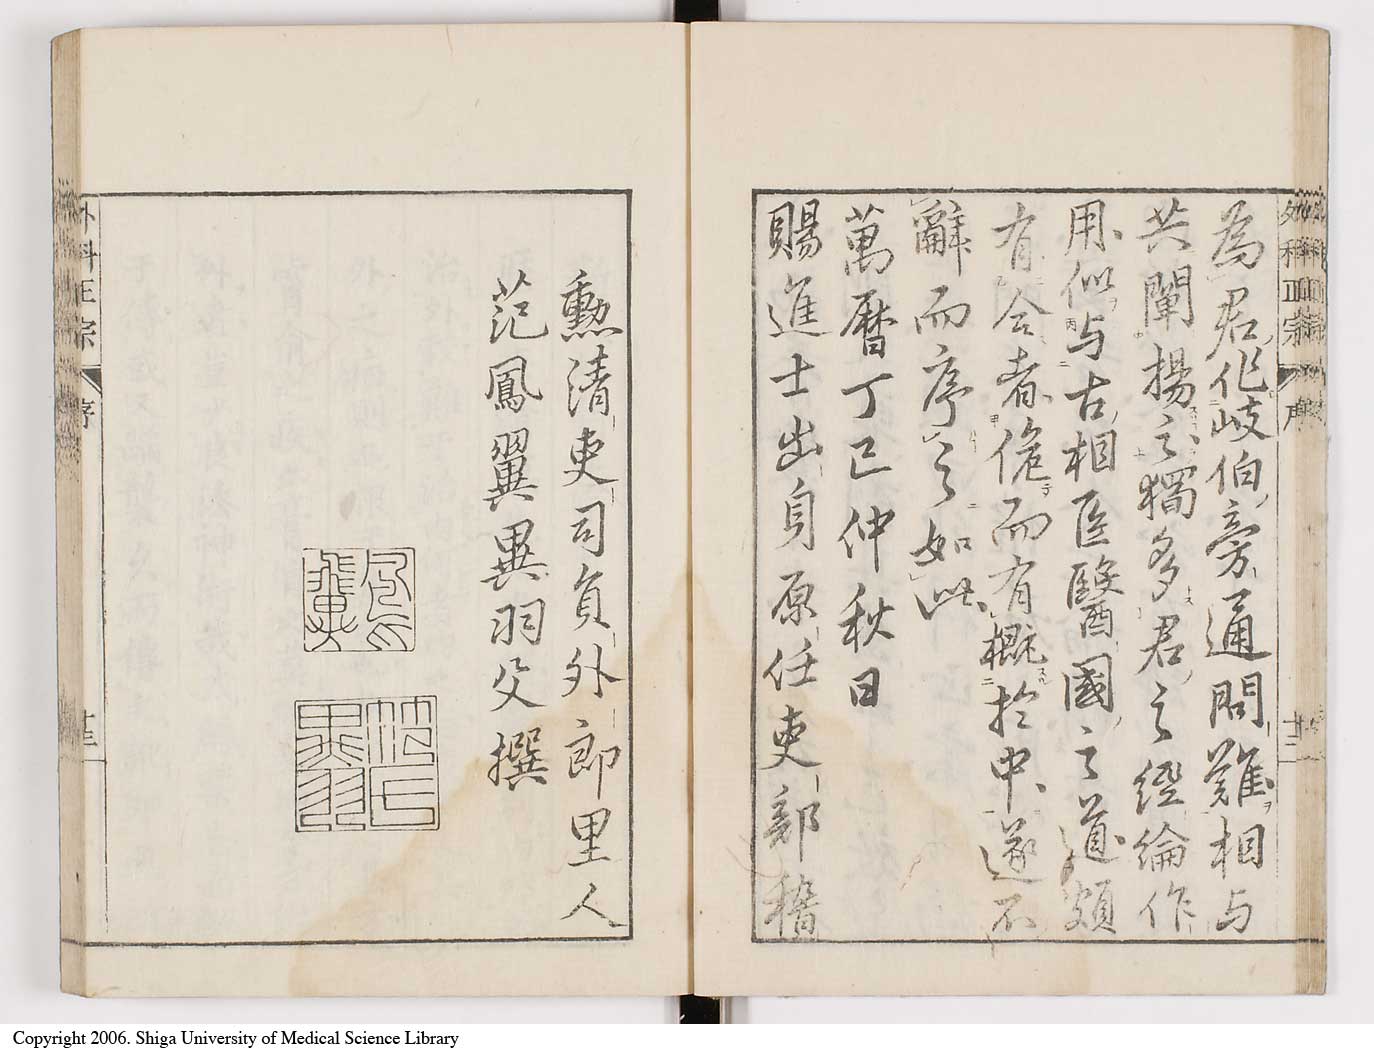 為君作岐伯旁通問難相与
共闡揚之獨多君之經綸作
用似与古相医醫國之道頗
有合者俛而有概於中遂不
辭而序之如此
萬曆丁巳仲秋日
賜進士出身原任吏部稽
外科正宗 序
勲清吏司負外郎里人
范鳳翼異羽父撰
外科正宗 序
Copyright 2006. Shiga University of Medical Science Library